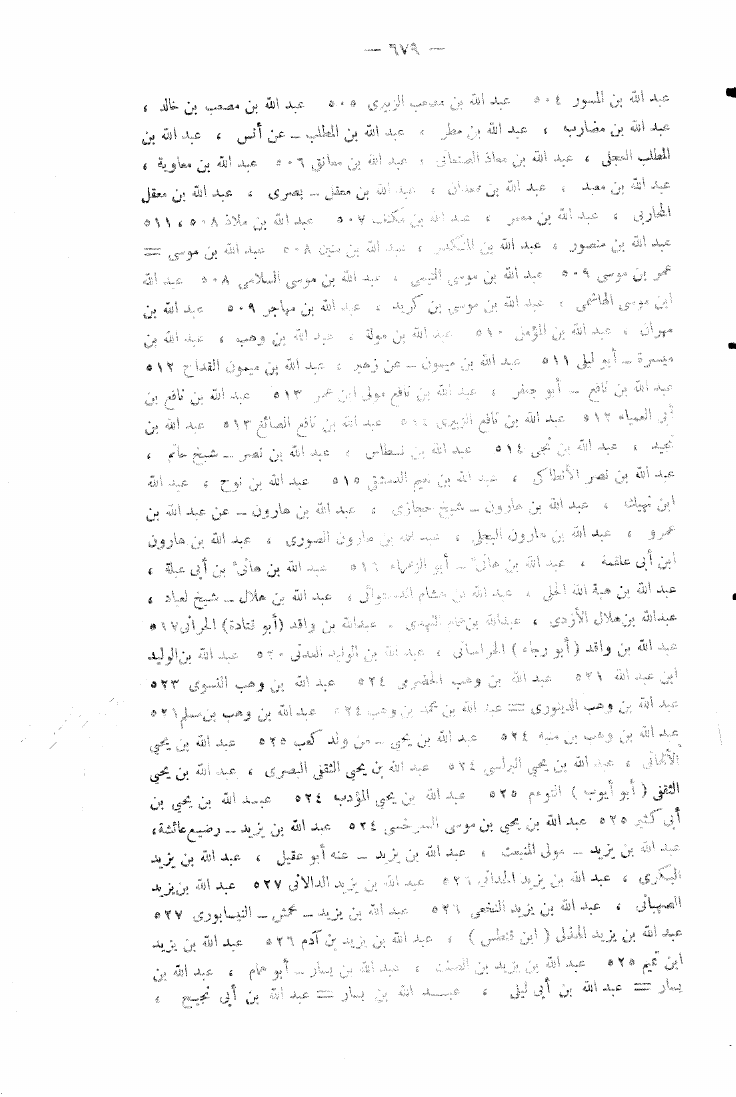 — ٦٧٩ —
عبد الله بن المسور ٥٠٤ عبد الله بن مصعب الزبيرى ٥٠٥ عبد الله بن مصعب بن خالد ،
عبد الله بن مضارب ، عبد الله بن مطر ، عبد الله بن المطلب ــ عن أنس ، عبد الله بن
المطلب العجلى ، عبد الله بن معاذ الصنعانى ، عبد الله بن معانق ٥٠٦ عبد الله بن معاوية ،
عبد الله بن معبد ، عبد الله بن معدان ، عبد الله بن معقل ــ بصرى ، عبد الله بن معقل
المحاربى ، عبد الله بن معمر ، عبد الله بن مكنف ٥٠٧ عبد الله بن ملاذ ٥٠٨ ، ٥١١
عبد الله بن منصور ، عبد الله بن المنكدر ، عبد الله بن منين ٥٠٨ عبد الله بن موسى =
عمر بن موسى ٥٠٩ عبد الله بن موسى التيمى ، عبد الله بن موسى السلامى ٥٠٨ عبد الله
ابن موسى الهاشمى ، عبد الله بن موسى بن كريد ، عبد الله بن مهاجر ٥٠٩ عبد الله بن
مهران ، عبد الله بن المؤمل ٥١٠ عبد الله بن مولة ، عبد الله بن وهب ، عبد الله بن
ميسرة ــ أبو ليلى ٥١١ عبد الله بن ميمون ــ عن زهير ، عبد الله بن ميمون القداح ٥١٢
عبد الله بن نافع ــ أبو جعفر ، عبد الله بن نافع مولى ابن عمر ٥١٣ عبد الله بن نافع بن
أبى العمياء ٥١٣ عبد الله بن نافع الزبيرى ٥١٤ عبد الله بن نافع الصائغ ٥١٣ عبد الله بن
عبد الله بن نجى ٥١٤ عبد الله بن نسطاس ، عبد الله بن نصر ــ شيخ حاتم ،
عبد الله بن نصر الأنطاكى ، عبد الله بن نعيم الدمشقى ٥١٥ عبد الله بن نوح ، عبد الله
ابن نهيك ، عبد الله بن هارون ــ شيخ حجازى ، عبد الله بن هارون ــ عن عبد الله بن
عمرو ، عبد الله بن هارون البجلى ، عبد الله بن هارون الصورى ، عبد الله بن هارون
ابن أبى علقمة ، عبد الله بن هانىء ــ أبو الزعراء ٥١٦ عبد الله بن هانىء بن أبى عبلة ،
عبد الله بن هبة الله الحلى ، عبد الله بن هشام الدستوائى ، عبد الله بن هلال ــ شيخ لعباد ،
عبدالله بن هلال الأزدى ، عبدالله بن همام النهدى ، عبدالله بن واقد (أبو قتادة) الحرانى ٥١٧
عبد الله بن واقد ( أبو رجاء ) الخراسانى ، عبد الله بن الوليد العدنى ٥٢٠ عبد الله بن الوليد
ابن عبد الله ٥٢١ عبد الله بن وهب الحضرمى ٥٢٤ عبد الله بن وهب النسوى ٥٢٣
عبد الله بن وهب الدينورى = عبد الله بن محمد بن وهب ٥٢٤ عبد الله بن وهب بن مسلم ٥٢١
عبد الله بن وهب بن منبه ٥٢٤ عبد الله بن يحيى ــ من ولد كعب ٥٢٥ عبد الله بن يحيى
الألهانى ، عبد الله بن يحيى البرلسى ٥٢٤ عبد الله بن يحيى الثقفى البصرى ، عبد الله بن يحيى
الثقفى ( أبو أيوب ) التوءم ٥٢٥ عبد الله بن يحيى المؤدب ٥٢٤ عبد الله بن يحيى بن
أبى كثير ٥٢٥ عبد الله بن يحيى بن موسى السرخسى ٥٢٤ عبد الله بن يزيد ــ رضيع عائشة ،
عبد الله بن يزيد ــ مولى المنبعث ، عبد الله بن يزيد ــ عنه أبو عقيل ، عبد الله بن يزيد
البكرى ، عبد الله بن يزيد الحدانى ٥٢٦ عبد الله بن يزيد الدالانى ٥٢٧ عبد الله بن يزيد
الصهبانى ، عبد الله بن يزيد النخعى ٥٢٦ عبد الله بن يزيد ــ محمش ــ النيسابورى ٥٢٧
عبد الله بن يزيد الهذلى ( ابن قنطس ) ، عبد الله بن يزيد بن آدم ٥٢٦ عبد الله بن يزيد
ابن تميم ٥٢٥ عبد الله بن يزيد بن الصلت ، عبد الله بن يسار ــ أبو همام ، عبد الله بن
يسار = عبد الله بن أبى ليلى ، عبــد الله بن يسار = عبد الله بن أبى نجيــح ،